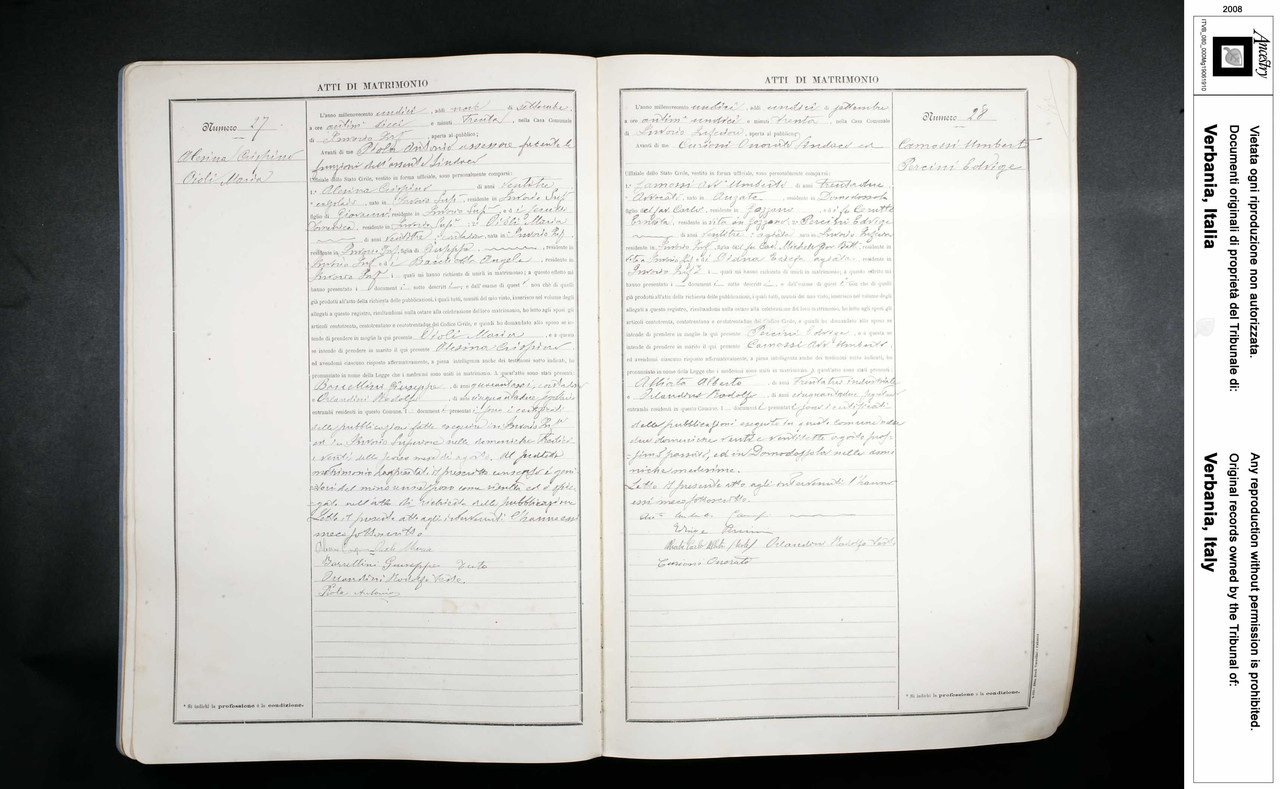 ATTI DI MATRIMONIO
Numero 27
Alesina Crispino
Pioli Maria
L'anno millenovecento undici, addì nove di settembre,
a ore antim dieci e minuti trenta, nella Casa Comunale
di Invorio Inf, aperta al pubblico;
Avanti di me Piola Antonio assessore facente le
funzioni dell'assente Sindaco
Uffiziale dello Stato Civile, vestito in forma ufficiale, sono personalmente comparsi:
1° Alesina Crispino, di anni ventitre
, nato in Invorio Inf, residente in Invorio Inf
figlio di, residente in Invorio Inf e di
, residente in Invorio Inf 2° Pioli Maria
di anni ventitre, nata in Invorio Inf
residente in Invorio Inf, figlia di Giuseppe, residente in
Invorio Inf e di Angela, residente in
Invorio Inf; i quali mi hanno richiesto di unirli in matrimonio; a questo effetto mi
hanno presentato i document i sotto descritt i; e dall'esame di questi non che di quelli
già prodotti all'atto della richiesta delle pubblicazioni, i quali tutti, muniti del mio visto, inserisco nel volume degli
allegati a questo registro, risultandomi nulla ostare alla celebrazione del loro matrimonio, ho letto agli sposi gli
articoli centotrenta, centotrentuno e centotrentadue del Codice Civile, e quindi ho domandato allo sposo se in-
tende di prendere in moglie la qui presente Pioli Maria, e a questa
se intende di prendere in marito il qui presente Alesina Crispino
ed avendomi ciascuno risposto affermativamente, a piena intelligenza anche dei testimoni sotto indicati, ho
pronunziato in nome della Legge che i medesimi sono uniti in matrimonio. A quest'atto sono stati presenti:
Giuseppe, di anni quarantasei,
e Orlandini Rodolfo, di anni cinquantadue
entrambi residenti in questo Comune. I document i presentati sono i certificati
delle pubblicazioni fatte eseguire in Invorio Inf
ed in Invorio Superiore nelle domeniche tredici
e venti dello scorso mese di agosto. Al presente
matrimonio
Letto il presente atto agli intervenuti l'hanno essi
meco sottoscritto
Pioli Maria
Giuseppe teste
Orlandini Rodolfo teste
Piola Antonio
* Si indichi la professione o la condizione.
ATTI DI MATRIMONIO
Numero 28
Camossi Umberto
Percini Edvige
L'anno millenovecento undici, addì undici di settembre
a ore antim undici e minuti trenta, nella Casa Comunale
di Invorio Inferiore, aperta al pubblico;
Avanti di me Curioni Onorato Sindaco ed
Uffiziale dello Stato Civile, vestito in forma ufficiale, sono personalmente comparsi:
1° Camossi Avv Umberto, di anni trentadue
Avvocato, nato in Angate, residente in Domodossola
figlio del fu Carlo, residente in Gozzano e di fu
Ernesta, residente in vita in Gozzano 2° Percini Edvige
di anni ventitre, agiata, nata in Invorio Inferiore
residente in Invorio Inf, figlia del fu Cav. Michele, residente in
vita Invorio Inf e di Teresa agiata, residente in
Invorio Inf; i quali mi hanno richiesto di unirli in matrimonio; a questo effetto mi
hanno presentato i document i sotto descritt i; e dall'esame di questi non che di quelli
già prodotti all'atto della richiesta delle pubblicazioni, i quali tutti, muniti del mio visto, inserisco nel volume degli
allegati a questo registro, risultandomi nulla ostare alla celebrazione del loro matrimonio, ho letto agli sposi gli
articoli centotrenta, centotrentuno e centotrentadue del Codice Civile, e quindi ho domandato allo sposo se
intende di prendere in moglie la qui presente Percini Edvige, e a questa
se intende di prendere in marito il qui presente Camossi Avv Umberto
ed avendomi ciascuno risposto affermativamente, a piena intelligenza anche dei testimoni sotto indicati, ho
pronunziato in nome della Legge che i medesimi sono uniti in matrimonio. A quest'atto sono stati presenti:
Alberto, di anni trentatre industriale
e Orlandini Rodolfo, di anni cinquantadue
entrambi residenti in questo Comune. I document i presentati sono i certificati
delle pubblicazioni eseguite in questo comune nelle
due domeniche venti e ventisette agosto pros-
simo passato, ed in Domodossola nelle dome
niche medesime.
Letto il presente atto agli intervenuti l'hanno
essi meco sottoscritto.
Edvige Percini
Orlandini Rodolfo teste
Curioni Onorato
* Si indichi la professione o la condizione.
2008
Ancestry
ITVB_080_000Mg19081910
Vietata ogni riproduzione non autorizzata.
Documenti originali di proprietà del Tribunale di:
Verbania, Italia
Any reproduction without permission is prohibited.
Original records owned by the Tribunal of:
Verbania, Italy